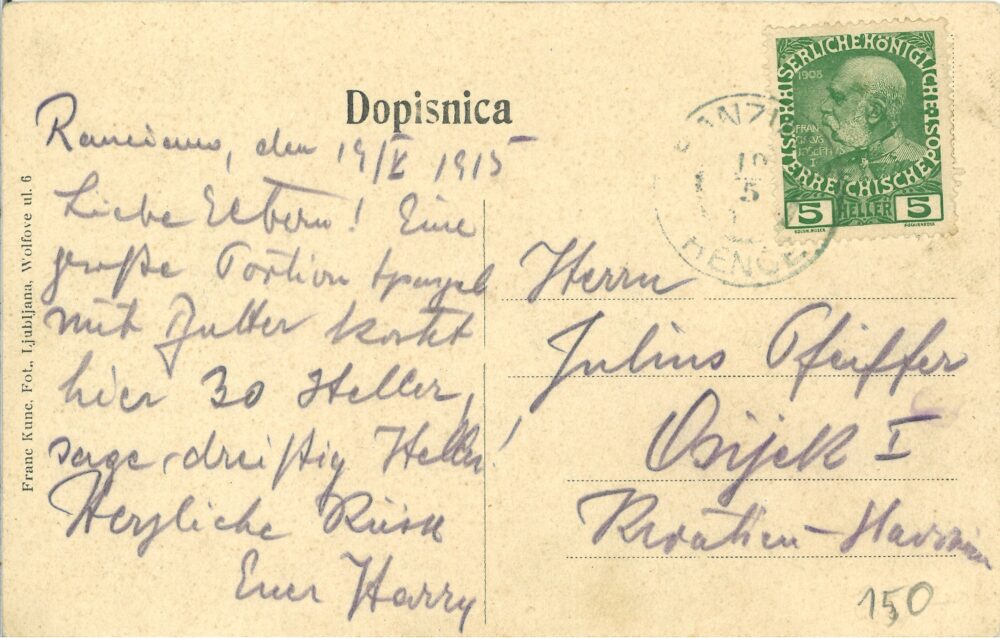 Dopisnica
den 19/V 1915
Liebe Eltern! Eine
große Portion Spargel
mit Butter kostet
hier 30 Heller,
sage dreißig Heller!
Herzliche Küsse
Euer Harry
Franc Kunc, Fot., Ljubljana, Wolfove ul. 6
KAISERLICHE KÖNIGLICHE ÖSTERREICHISCHE POST
1908
FRANZ
JOSEPH I
5 HELLER 5
Herrn
Julius Pfeiffer
Osijek I
Kroatien-Slavonien
150